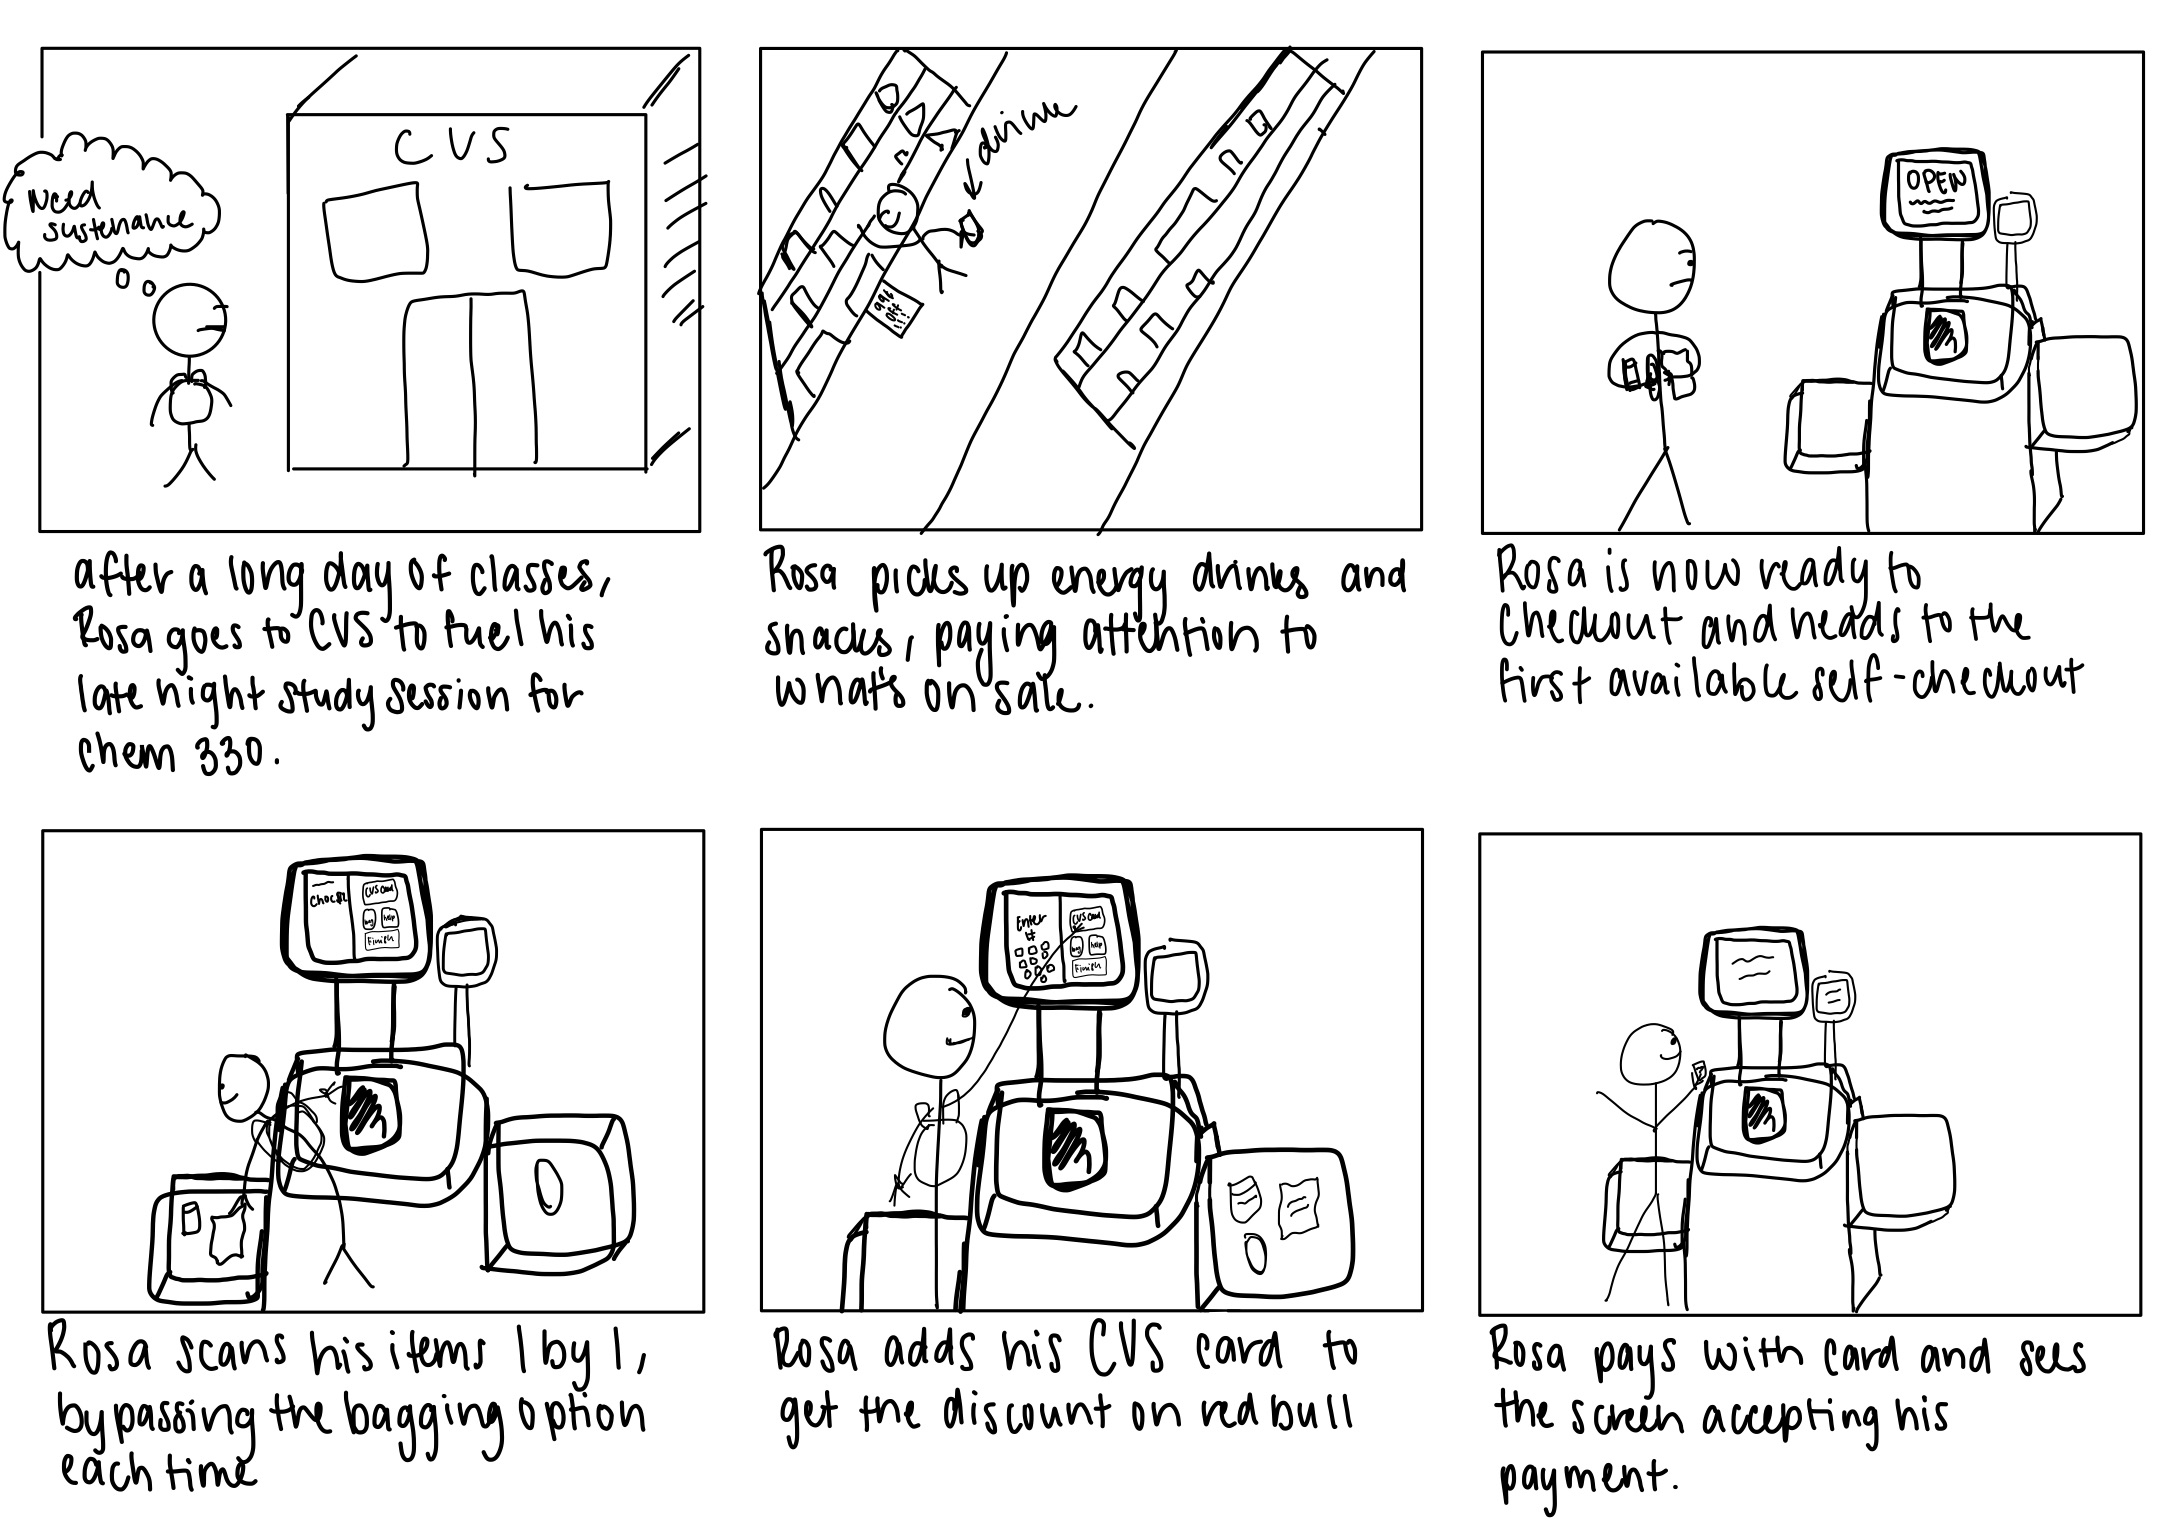 need
sustenance
CVS
after a long day of classes,
Rosa goes to CVS to fuel his
late night study session for
chem 330.
99¢
off
!!!
Rosa picks up energy drinks and
snacks, paying attention to
what's on sale.
OPEN
Rosa is now ready to
checkout and heads to the
first available self-checkout
CVS Card
bag
help
Finish
Rosa scans his items 1 by 1,
bypassing the bagging option
each time
Enter
#
CVS Card
bag
help
Finish
Rosa adds his CVS card to
get the discount on redbull
Rosa pays with card and sees
the screen accepting his
payment.